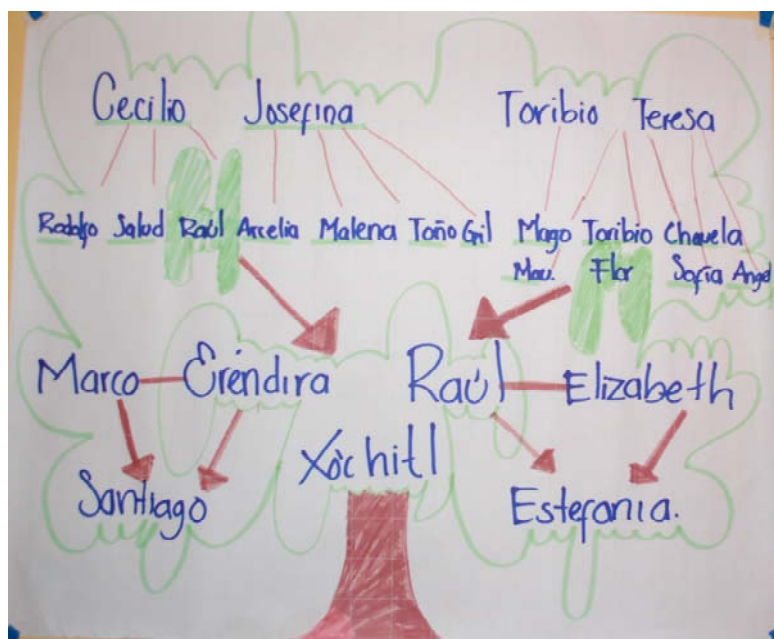 Cecilio Josefina Toribio Teresa
Rodolfo Salud Raúl Arcelia Malena Toño Gil Mago Toribio Chavela
Mau. Flor Sofía Angel
Marco Eréndira Raúl Elizabeth
Xòchitl
Santiago Estefania.